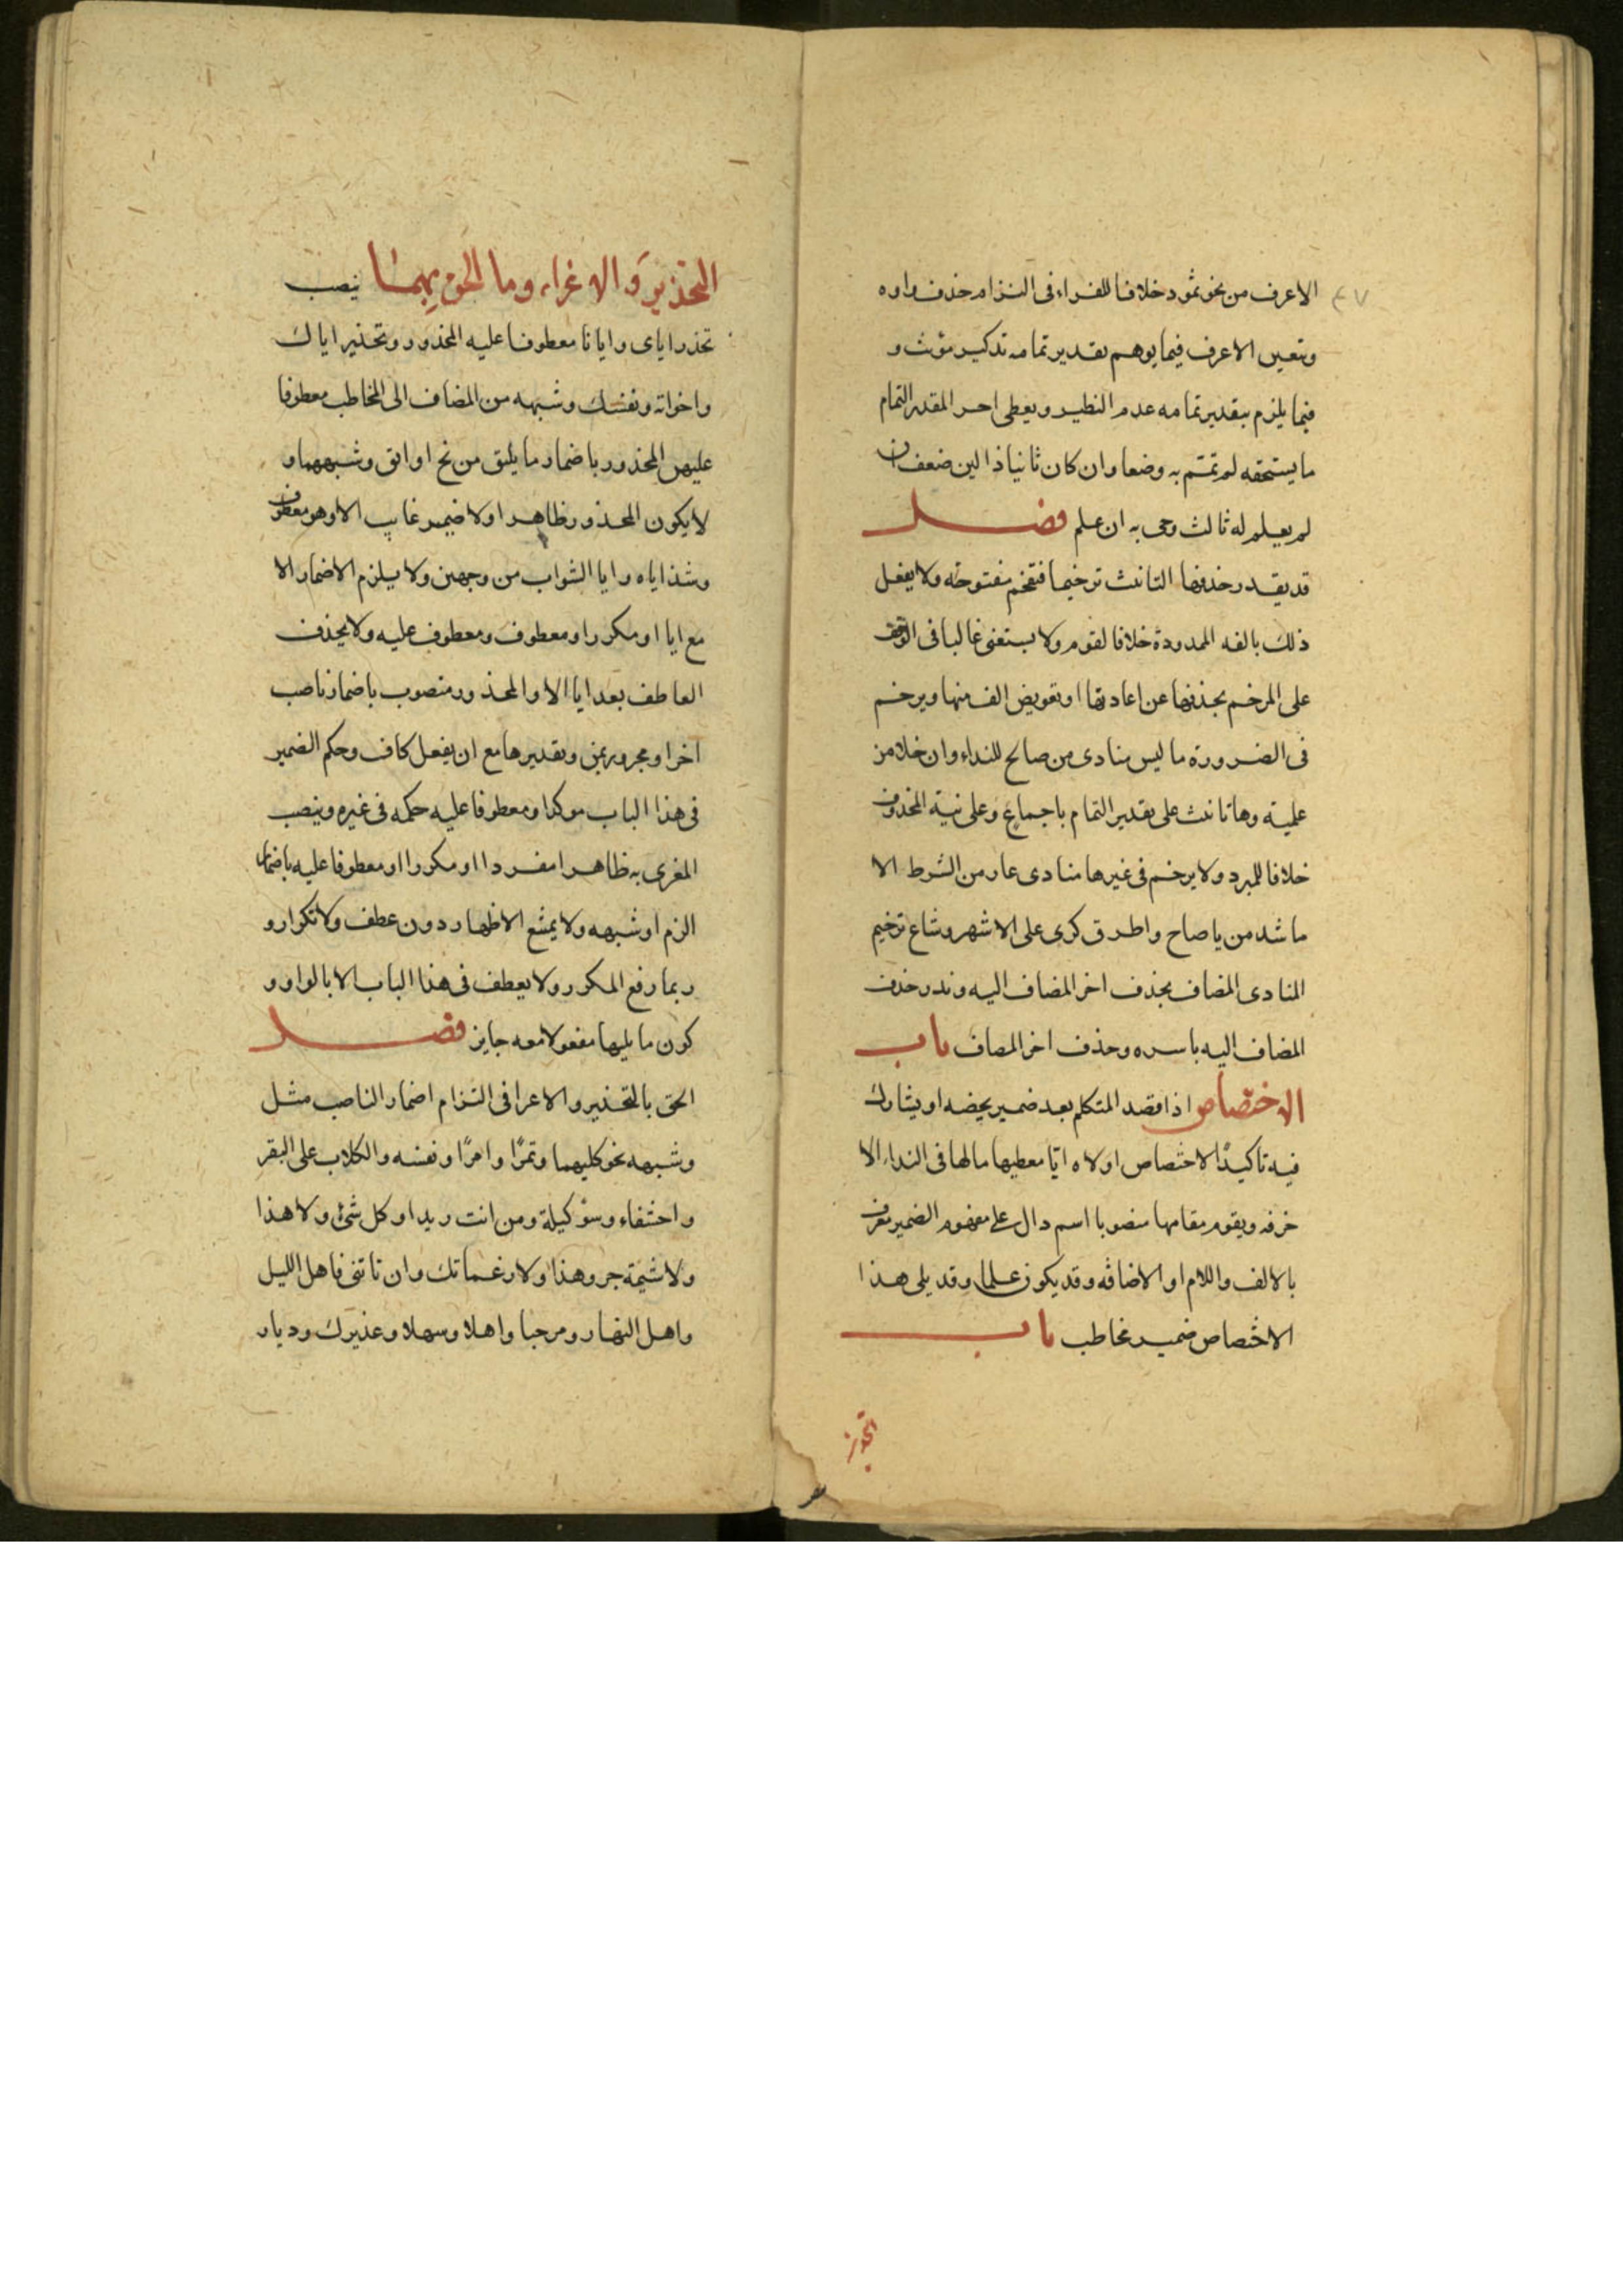 ٤٧
الاعرف من نحو ثمود خلافا للفراء فى التزام حذف واوه
ويتعين الاعرف فيما يوهم تقدير تمامه تذكير مؤنث و
فيما يلزم بتقدير تمامه عدم النظير ويعطى اخر المقدر التمام
ما يستحقه لو تمم به وضعا وان كان ثانيا ذا لين ضعف ان
لم يعلم له ثالث وجى به ان علم فصل
قد يقدر حذف ها التانيث ترخيما فتقحم مفتوحة ولا يفعل
ذلك بالفه الممدودة خلافا لقوم ولا يستغنى غالبا فى الوقف
على المرخم بحذفها عن اعادتها او تعويض الف منها ويرخم
فى الضرورة ما ليس منادى من صالح للنداء وان خلا من
علمية وها تانيث على تقدير التمام باجماع وعلى نية المحذوف
خلافا للمبرد ولا يرخم فى غيرها منادى عار من الشرط الا
ما شذ من يا صاح واطرق كرى على الاشهر وشاع ترخيم
المنادى المضاف بحذف اخر المضاف اليه وندر حذف
المضاف اليه باسره وحذف اخر المضاف باب
الاختصاص اذا قصد المتكلم بعد ضمير يخصه او يشارك
فيه تاكيدًا لاختصاص اولاه ايّا معطيها مالها فى النداء الا
حرفه ويقوم مقامها منصوبا اسم دال على مفهوم الضمير معرف
بالالف واللام او الاضافه وقد يكون علما وقد يلى هذا
الاختصاص ضمير مخاطب باب
التحذير والاغراء وما الحق بهما ينصب
تحذر اياى وايانا معطوفا عليه المحذور وتحذير اياك
واخواته ونفسك وشبهه من المضاف الى المخاطب معطوفا
عليهن المحذور باضمار ما يليق من نح او اتق وشبههما و
لا يكون المحذور ظاهرا ولا ضمير غايب الا وهو معطوف
وشذ اياه وايا الشواب من وجهين ولا يلزم الاضمار الا
مع ايا او مكررا ومعطوف ومعطوف عليه ولا يحذف
العاطف بعد ايا الا والمحذور منصوب باضمار ناصب
اخر او مجرور بمن وتقديرها مع ان يفعل كاف وحكم الضمير
فى هذا الباب موكدا ومعطوفا عليه حكمه فى غيره وينصب
المغرى به ظاهرا مفردا او مكررا او معطوفا عليه باضمار
الزم او شبهه ولا يمتنع الاظهار دون عطف ولا تكرار و
ربما رفع المكرر ولا يعطف فى هذا الباب الا بالواو و
كون ما يليها مفعولا معه جايز فصل
الحق بالتحذير والاغرا فى التزام اضمار الناصب مثل
وشبهه نحو كليهما وتمرًا وامرًا ونفسه والكلاب على البقر
واحشفاء وسؤ كيلة ومن انت زيدا وكل شئ ولا هذا
ولا شتيمة حر وهذا ولا زعماتك وان تاتنى فاهل الليل
واهل النهار ومرحبا واهلا وسهلا وعذيرك وديار